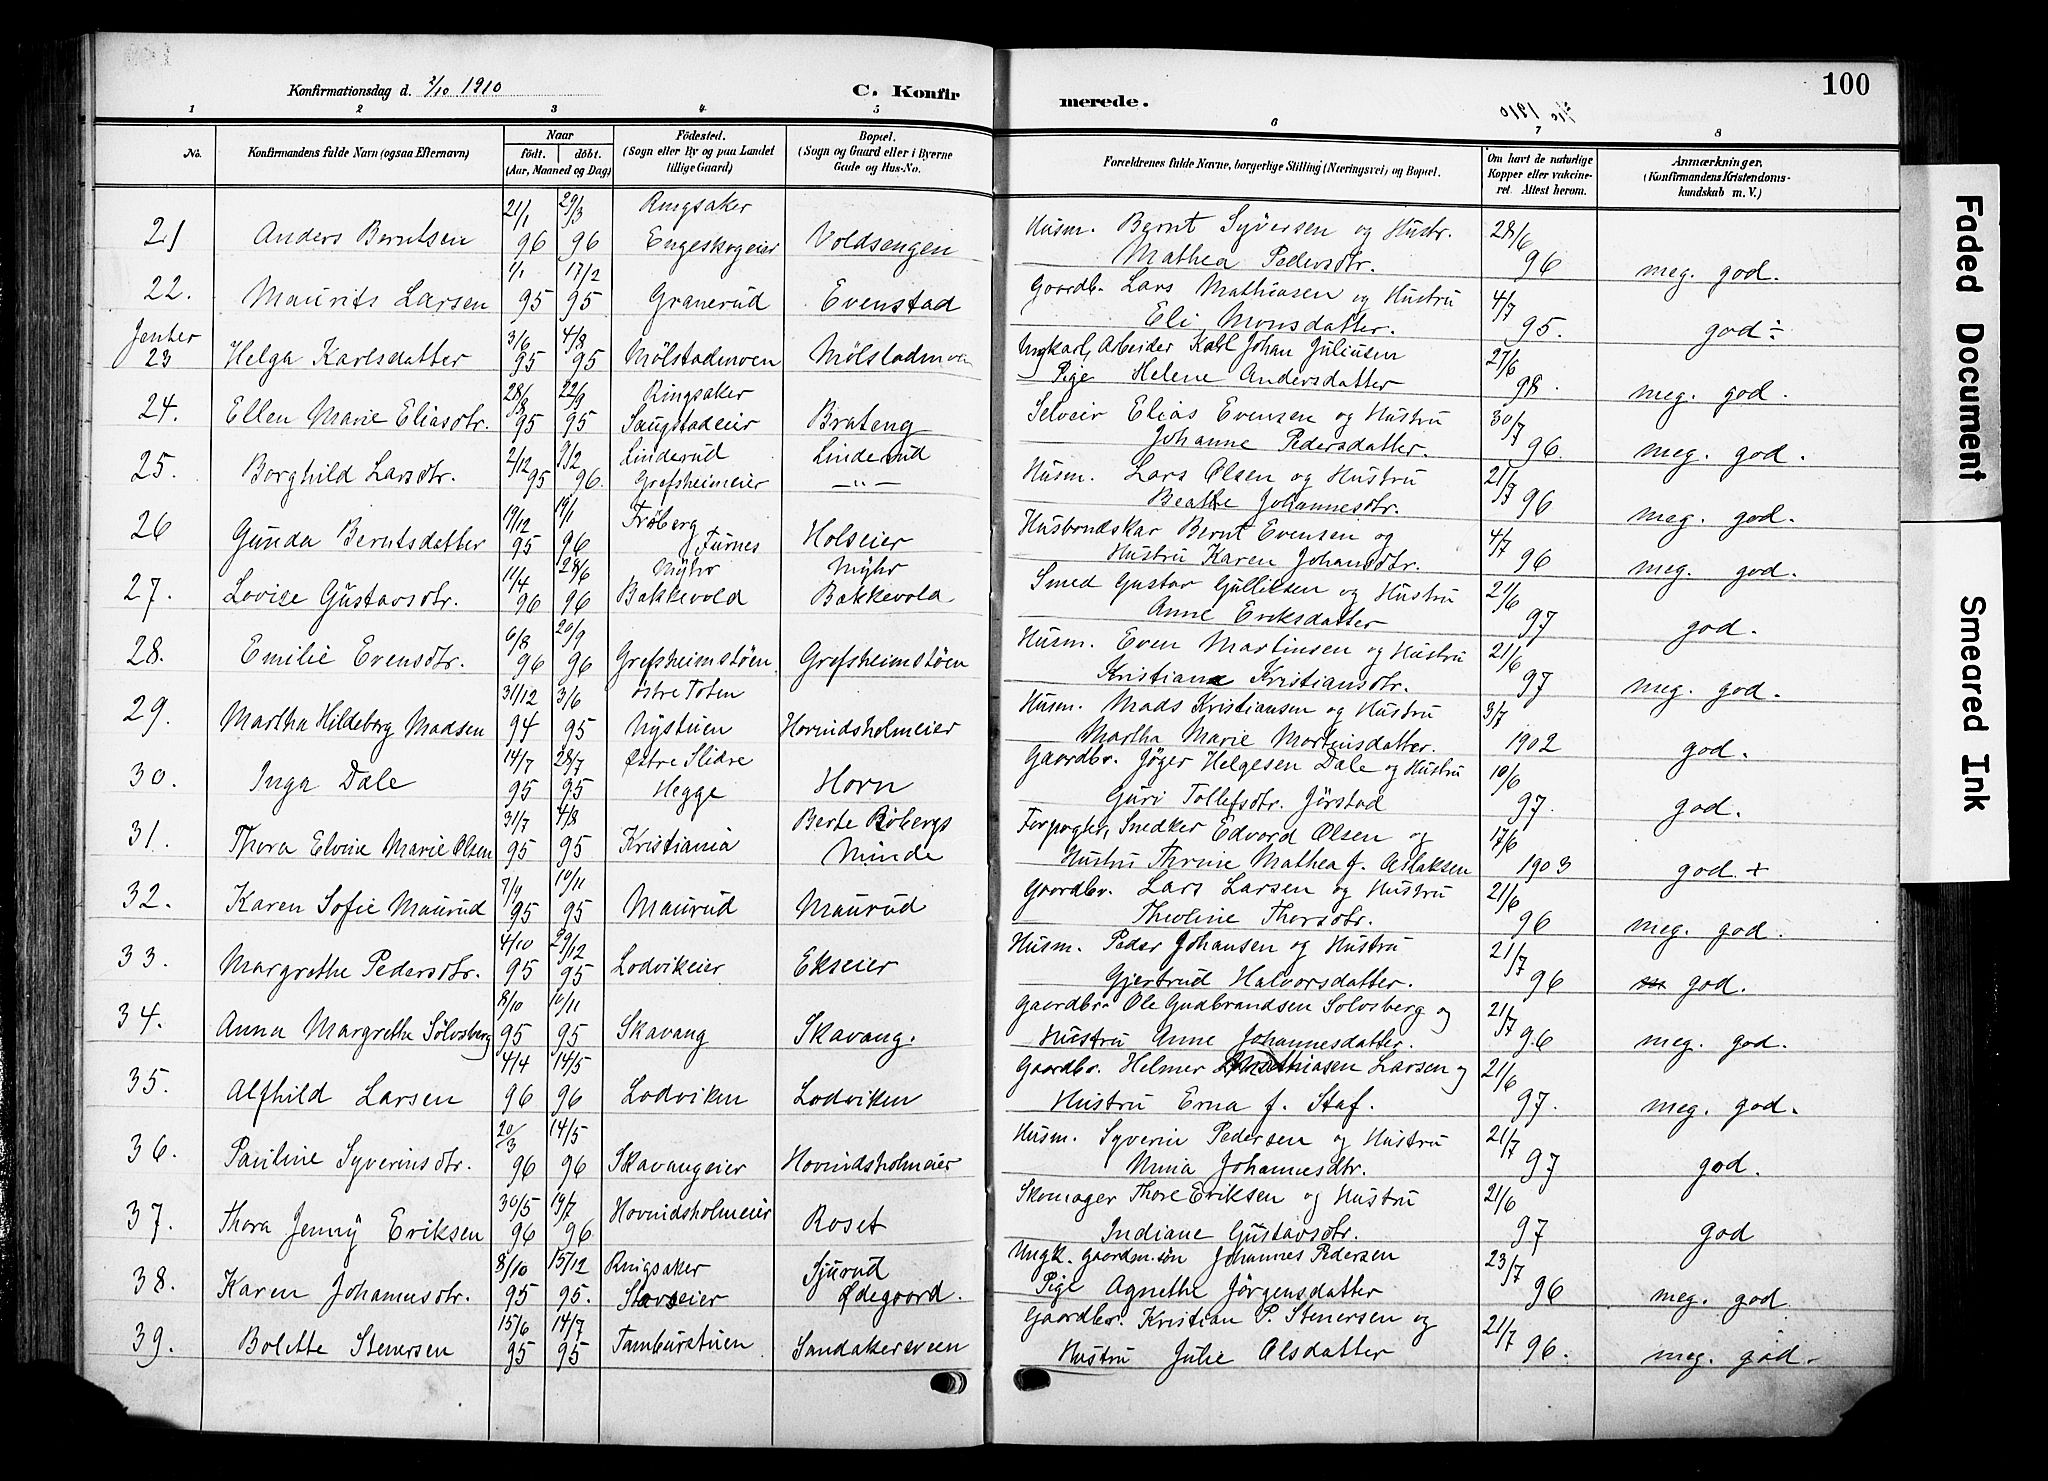 Konfirmationsdag d. 2/10 1910
C. Konfir
merede.
2/10 1910
100
1 2 3 4 5 6 7 8
No.
Konfirmandens fulde Navn (ogsaa Efternavn)
Naar
födt. döbt.
(Aar, Maaned og Dag)
Födested.
(Sogn eller By og paa Landet
tillige Gaard)
Bopæl.
(Sogn og Gaard eller i Byerne
Gade og Hus-No.
Forældrenes fulde Navne, borgerlige Stilling (Næringsvei) og Bopæl.
Om havt de naturlige
Kopper eller vakcine-
ret Attest herom.
Anmærkninger,
(Konfirmandens Kristendoms-
kundskab m. V.)
21 Anders Berntsen 21/1 96 29/3 96 Ringsaker Engeskogeier Voldsengen Husm. Bernt Syversen og Hustr. Mathea Pedersdtr. 28/6 96 meg. god.
22. Maurits Larsen 1/1 95 17/2 95 Granerud Evenstad Gaardbr. Lars Mathiasen og Hustru Eli Monsdatter. 4/7 95. god ÷
Jenter
23 Helga Karlsdatter 3/6 95 4/8 95 Mølstadmoen Mølstadmoen Ungkarl, Arbeider Karl Johan Juliusen Pige Helene Andersdatter 27/6 98. meg. god.
24. Ellen Marie Eliasdtr. 28/8 95 22/9 95 Ringsaker Saugstadeier Brateng Selveier Elias Evensen og Hustru Johanne Pedersdatter. 30/7 96. meg. god.
25. Borghild Larsdtr. 2/12 95 9/2 96. Linderud Grefsheimeier Linderud —"— Husm. Lars Olsen og Hustru Beathe Johannesdtr. 21/7 96 meg. god.
26 Gunda Berntsdatter 19/12 95 19/1 96 Frøberg Furnes Holseier Husbondskar Bernt Evensen og Hustru Karen Johansdtr. 4/7 96 meg. god.
27. Lovise Gustavsdtr. 11/4 96 28/6 96 Myhr Bakkevold Myhr Bakkevold Smed Gustav Gulliksen og Hustru Anne Eriksdatter 21/6 97 god.
28. Emilie Evensdtr. 6/8 96 20/9 96 Grefsheimstøen Grefsheimstøen Husm. Even Martinsen og Hustru Kristiane Kristiansdtr. 21/6 97 meg. god.
29. Martha Hildeborg Madsen 31/12 94 3/6 95 østre Toten Nystuen Hovindsholmeier Husm. Mads Kristiansen og Hustru Martha Marie Martinsdatter. 3/7 1902 god.
30. Inga Dale 14/7 95 28/7 95 Østre Slidre Hegge Horn Gaardbr. Jøger Helgesen Dale og Hustru Guri Tollefsdtr. Jørstad 10/6 97. god.
31. Thora Elvine Marie Olsen 31/7 95 4/8 95 Kristiania Berte Bobergs Minde Forpagter, Snedker Edvard Olsen og Hustru Thrine Mathea f. Aslaksen 17/6 1903 god. +
32. Karen Sofie Maurud 7/9 95 10/11 95 Maurud Maurud Gaardbr. Lars Larsen og Hustru Theoline Thorsdtr. 21/6 96 meg. god.
33. Margrethe Pedersdtr. 4/10 95 29/12 95 Lodvikeier Ekseier Husm. Peder Johansen og Hustru Gjertrud Halvorsdatter. 21/7 96 god.
34. Anna Margrethe Sølvsberg 8/10 95 10/11 95 Skavang Skavang. Gaardbr. Ole Gudbrandsen Solvsberg og Hustru Anne Johannesdatter. 21/7 96 meg. god.
35. Alfhild Larsen 4/4 96 14/5 96 Lodviken Lodviken Gaardbr. Helmer Mathiasen Larsen og Hustru Erna f. Staf. 21/6 97. meg. god.
36. Pauline Syverinsdtr. 20/3 96 14/5 96 Skavangeier Hovindsholmeier Husm. Syverin Pedersen og Hustru Mina Johannesdtr. 21/7 97 god.
37. Thora Jenny Eriksen 30/5 96 19/7 96 Hovindsholmeier Roset Skomager Thore Eriksen og Hustru Indiane Gustavsdtr. 21/6 97 god
38. Karen Johannesdtr. 8/10 95 15/12 95. Ringsaker Storseier Sjurud Ødegaard. Ungk. gaardm.søn Johannes Pedersen Pige Agnethe Jörgensdatter 23/7 96 meg. god
39. Bolette Stenersen 15/6 95 14/7 95 Tamburstuen Sandakersveen Gaardbr. Kristian P. Stenersen og Hustru Julie Olsdatter 21/7 96. meg. god.
Faded Document
Smeared Ink